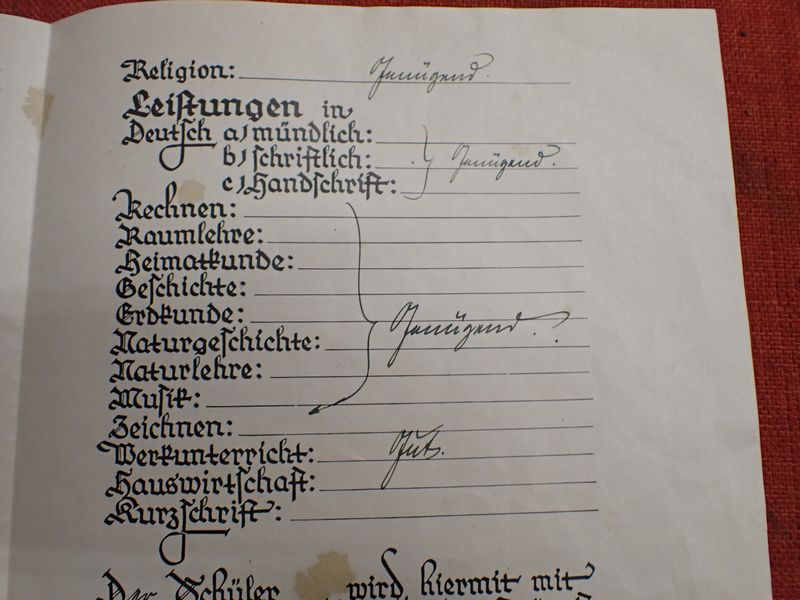 Religion: Genügend.
Leistungen in
Deutsch a) mündlich:
b) schriftlich: Genügend.
c) Handschrift:
Rechnen:
Raumlehre:
Heimatkunde:
Geschichte:
Erdkunde: Genügend.
Naturgeschichte:
Naturlehre:
Musik:
Zeichnen:
Werkunterricht: Gut.
Hauswirtschaft:
Kurzschrift:
Der Schüler wird hiermit mit